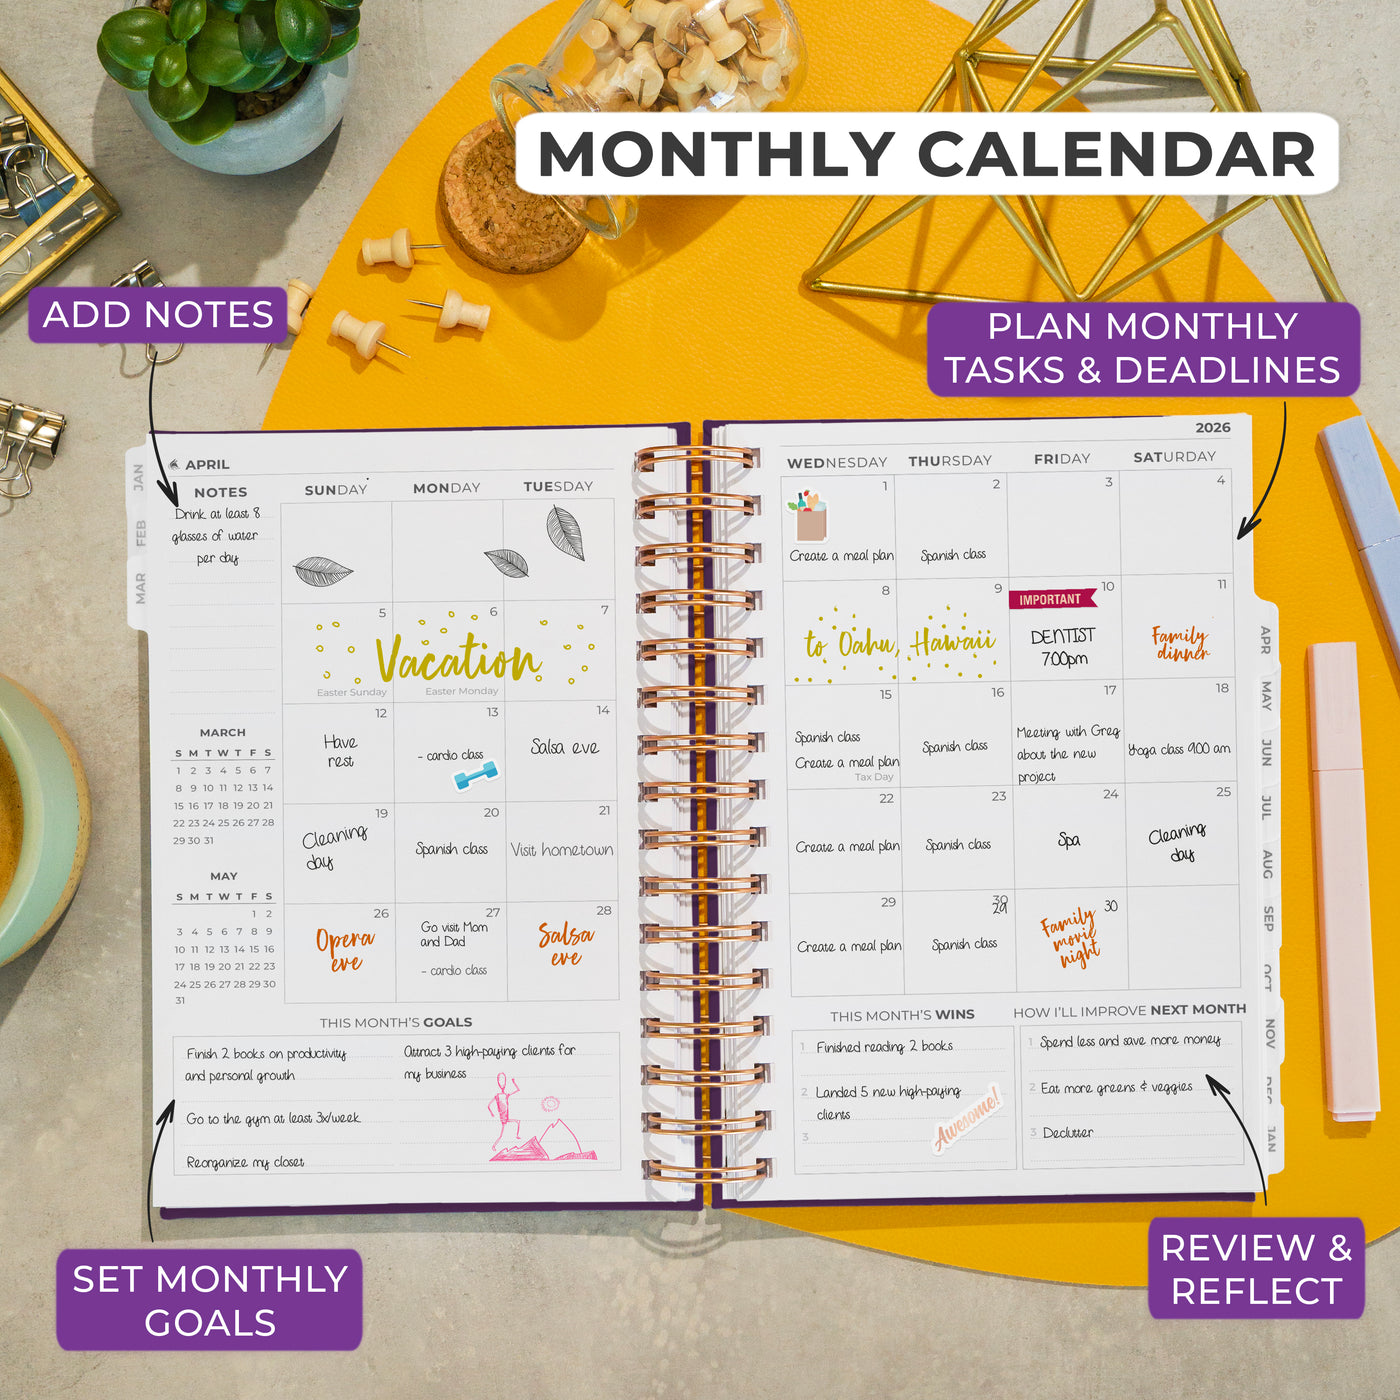 MONTHLY CALENDAR
ADD NOTES
PLAN MONTHLY
TASKS & DEADLINES
APRIL
2026
JAN
FEB
MAR
NOTES
Drink at least 8
glasses of water
per day
SUNDAY MONDAY TUESDAY
WEDNESDAY THURSDAY FRIDAY SATURDAY
1 2 3 4
Create a meal plan Spanish class
5 6 7
Vacation
Easter Sunday Easter Monday
8 9 10 11
to Oahu, Hawaii
IMPORTANT
DENTIST
7:00pm
Family
dinner
12 13 14
Have
rest
- cardio class
Salsa eve
15 16 17 18
Spanish class
Create a meal plan
Tax Day
Spanish class
Meeting with Greg
about the new
project
Yoga class 9:00 am
19 20 21
Cleaning
day
Spanish class
Visit hometown
22 23 24 25
Create a meal plan
Spanish class
Spa
Cleaning
day
26 27 28
Opera
eve
Go visit Mom
and Dad
- cardio class
Salsa
eve
29 30
29
30
Create a meal plan
Spanish class
Family
movie
night
MARCH
S M T W T F S
1 2 3 4 5 6 7
8 9 10 11 12 13 14
15 16 17 18 19 20 21
22 23 24 25 26 27 28
29 30 31
MAY
S M T W T F S
1 2
3 4 5 6 7 8 9
10 11 12 13 14 15 16
17 18 19 20 21 22 23
24 25 26 27 28 29 30
31
THIS MONTH'S GOALS
Finish 2 books on productivity
and personal growth
Go to the gym at least 3x/week
Reorganize my closet
Attract 3 high-paying clients for
my business
THIS MONTH'S WINS
1 Finished reading 2 books
2 Landed 5 new high-paying
clients
3
Awesome!
HOW I'LL IMPROVE NEXT MONTH
1 Spend less and save more money
2 Eat more greens & veggies
3 Declutter
APR
MAY
JUN
JUL
AUG
SEP
OCT
NOV
DEC
JAN
SET MONTHLY
GOALS
REVIEW &
REFLECT